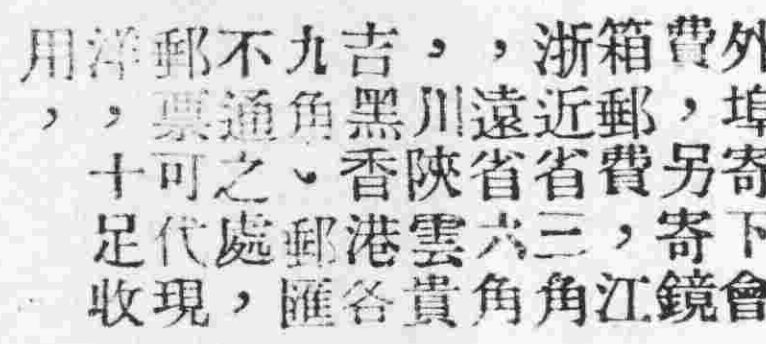 外埠寄下會
費，另寄鏡
箱郵費，江
浙近省三角
，遠省六角
，川陝雲貴
吉黑香港各
九角、郵匯
不通之處，
郵票可代現
洋，十足收
用，